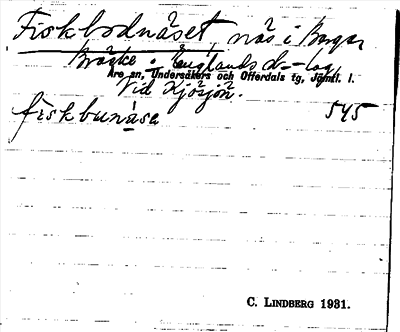 Fiskbodnäset, näs i
Bräcke o. Englands d-lag
Åre sn, Undersåkers och Offerdals tg, Jämtl. l.
Vid Kjösjön. 545
fiskbunäse
C. LINDBERG 1931.